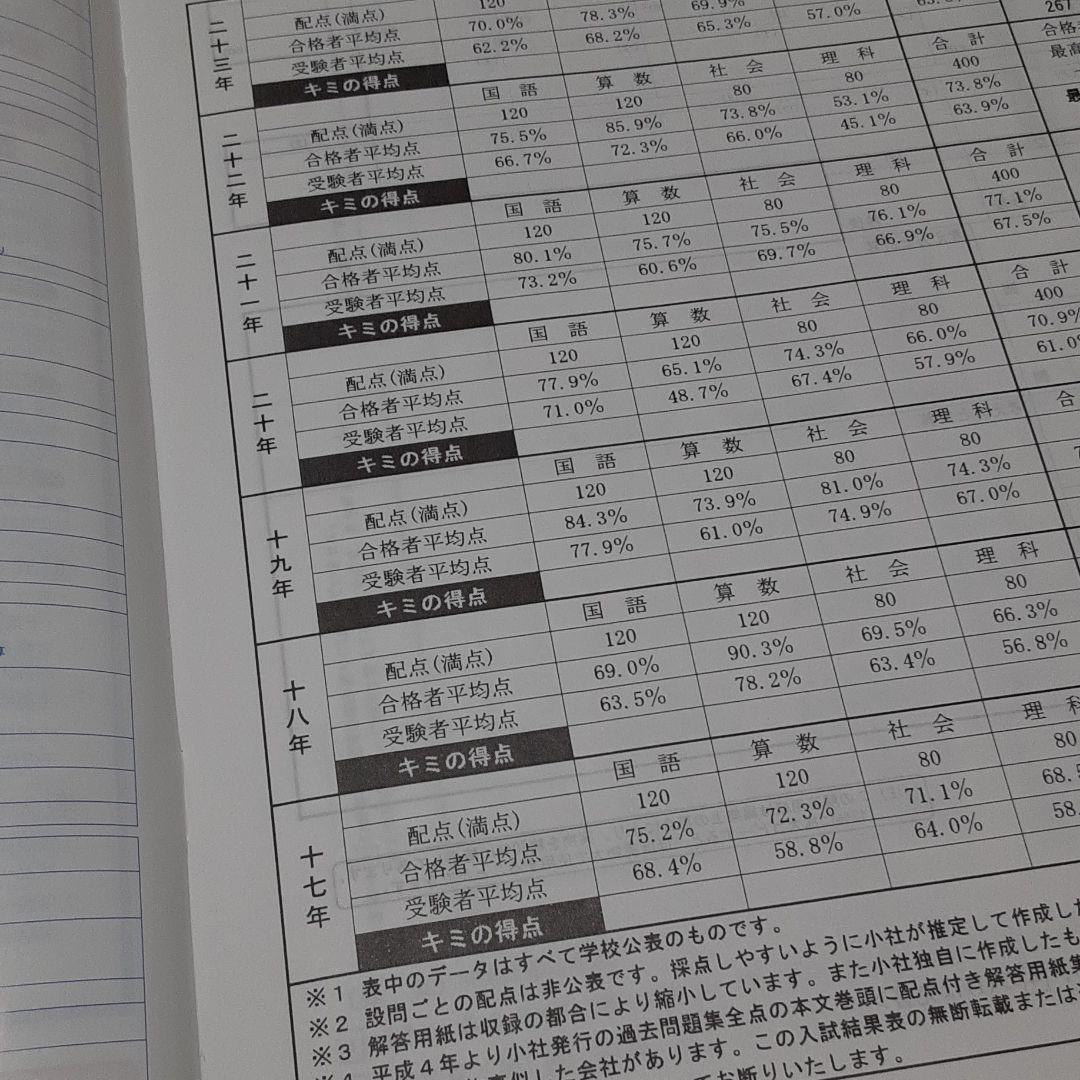 二十三年
120 69.9%
配点(満点) 70.0% 78.3% 65.3% 57.0% 267
合格者平均点 62.2% 68.2%
受験者平均点
キミの得点
二十二年
国語 算数 社会 理科 合計
配点(満点) 120 120 80 80 400
合格者平均点 75.5% 85.9% 73.8% 53.1% 73.8%
受験者平均点 66.7% 72.3% 66.0% 45.1% 63.9%
キミの得点
二十一年
国語 算数 社会 理科 合計
配点(満点) 120 120 80 80 400
合格者平均点 80.1% 75.7% 75.5% 76.1% 77.1%
受験者平均点 73.2% 60.6% 69.7% 66.9% 67.5%
キミの得点
二十年
国語 算数 社会 理科 合計
配点(満点) 120 120 80 80 400
合格者平均点 77.9% 65.1% 74.3% 66.0% 70.9%
受験者平均点 71.0% 48.7% 67.4% 57.9% 61.0
キミの得点
十九年
国語 算数 社会 理科 合
配点(満点) 120 120 80 80
合格者平均点 84.3% 73.9% 81.0% 74.3%
受験者平均点 77.9% 61.0% 74.9% 67.0%
キミの得点
十八年
国語 算数 社会 理科
配点(満点) 120 120 80 80
合格者平均点 69.0% 90.3% 69.5% 66.3%
受験者平均点 63.5% 78.2% 63.4% 56.8%
キミの得点
十七年
国語 算数 社会 理科
配点(満点) 120 120 80 80
合格者平均点 75.2% 72.3% 71.1% 68.5
受験者平均点 68.4% 58.8% 64.0% 58.
キミの得点
※1 表中のデータはすべて学校公表のものです。
※2 設問ごとの配点は非公表です。採点しやすいように小社が推定して作成した
※3 解答用紙は収録の都合により縮小しています。また小社独自に作成したも
平成4年より小社発行の過去問題集全点の本文巻頭に配点付き解答用紙集
した会社があります。この入試結果表の無断転載または
お断りいたします。